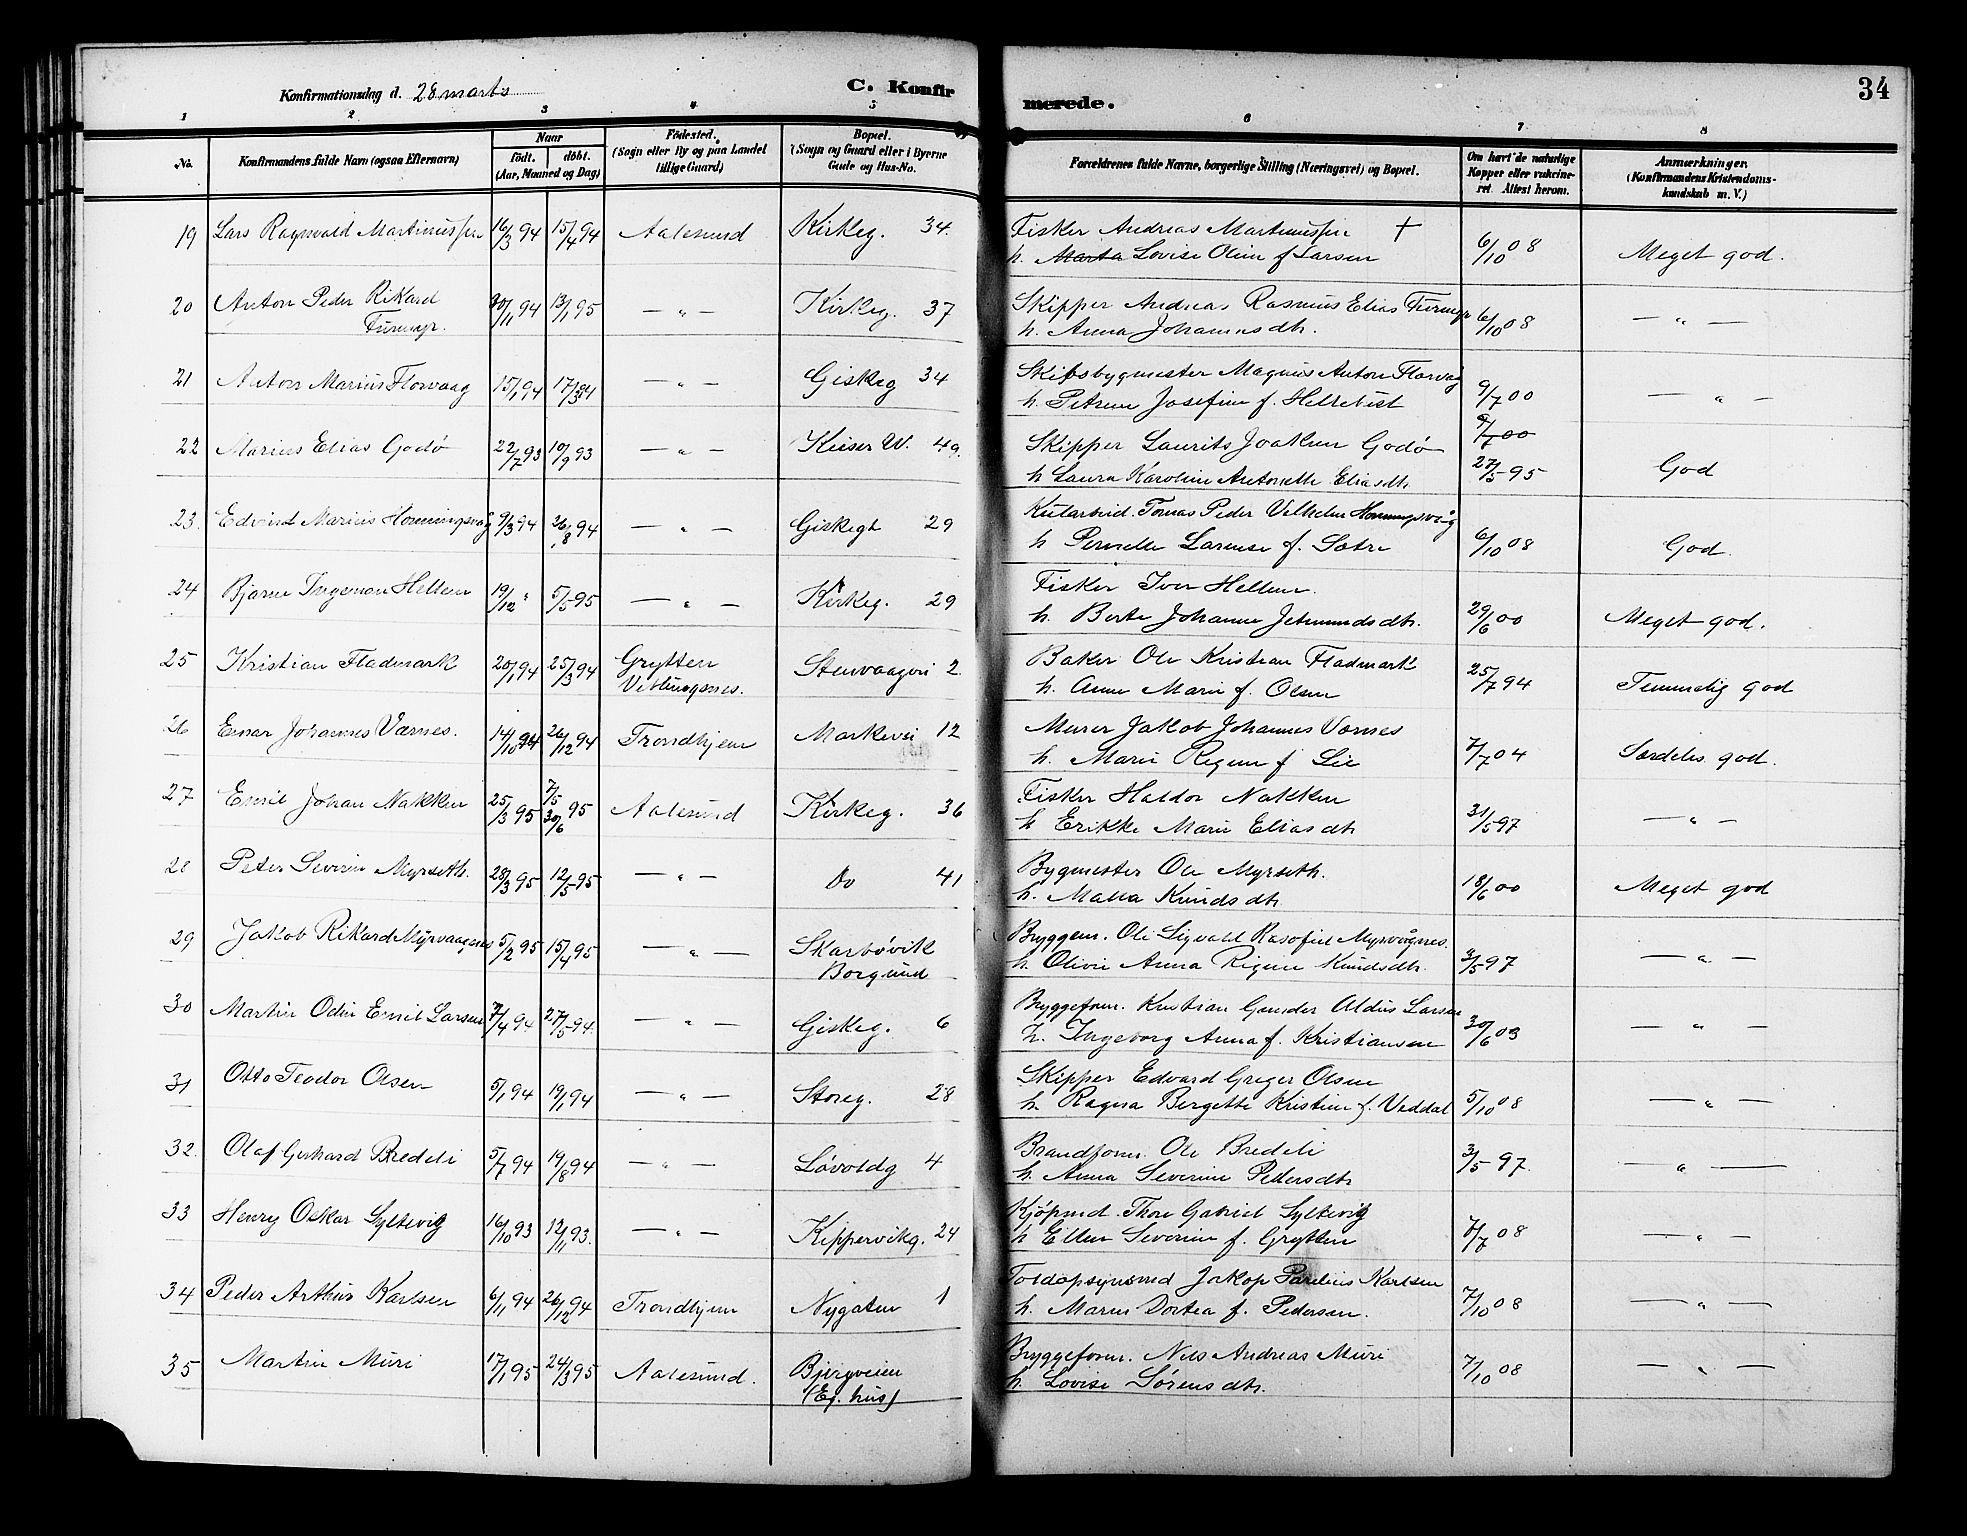 34
Konfirmationsdag d. 28 marts C. Konfirmerede.
1 2 3 4 5 6 7 8
No. Konfirmandens fulde Navn (ogsaa Efternavn) Naar födt. döbt. (Aar, Maaned og Dag) Födested. (Sogn eller By og paa Landet tillige Gaard) Bopæl. (Sogn og Gaard eller i Byerne Gade og Hus-No. Forældrenes fulde Navne, borgerlige Stilling (Næringsvei) og Bopæl. Om havt de naturlige Kopper eller vakcineret. Attest herom. Anmærkninger. (Konfirmandens Kristendomskundskab m. V.)
19 Lars Ragnvald Martinussen 16/3 94 15/4 94 Aalesund Kirkeg. 34. Fisker Andreas Martinussen + 6/10 08 Meget god.
h. Marta Lovise Oline f Larsen
20 Anton Peder Rikard Furmyr. 20/11 94 13/1 95 — „ — Kirkeg. 37 Skipper Andreas Rasmus Elias Furmyr 6/10 08 — „ —
h. Anna Johannesdtr.
21 Anton Marius Florvaag 15/1 94 17/3 94 — „ — Giskeg 34 Skibsbygmester Magnus Anton Florvåg 9/7 00 — „ —
h. Petrine Josefine f. Hellebust
22 Marius Elias Godø 22/7 93 10/9 93 — „ — Keiser W. 49. Skipper Laurits Joakim Godø 9/7 00
h Laura Karoline Antonette Eliasdtr. 27/5 95 God
23. Edvind Marius Honningsvåg 9/3 94 26/8 94 — „ — Giskegt 29 Kularbeid. Tomas Peder Vilhelm Honningsvåg
h Pernelle Larense f. Sætre 6/10 08 God.
24 Bjarne Ingeman Hellem 19/12 " 5/5 95 — „ — Kirkeg. 29 Fisker Iver Hellem.
h. Berte Johanne Jetmundsdtr. 29/6 00 Meget god.
25 Kristian Fladmark 20/1 94 25/3 94 Grytten Veblungsnes. Stenvaagvei 2. Baker Ole Kristian Fladmark
h. Anne Marie f. Olsen 25/7 94 Temmelig god
26 Einar Johannes Værnes. 14/10 94 26/12 94 Trondhjem Markevei 12 Murer Jakob Johannes Værnes
h. Marie Regine f Lie 7/7 04 Særdeles god.
27 Emil Johan Nakken 25/3 95 7/5 30/6 95 Aalesund Kirkeg. 36 Fisker Haldor Nakken
h Erikke Marie Eliasdtr 31/5 97 — „ —
28 Peter Severin Myrseth. 28/3 95 12/5 95 — „ — Do 41 Bygmester Ole Myrseth.
h. Malla Knudsdtr 18/6 00 Meget god
29 Jakob Rikard Myrvaagnes 5/2 95 15/4 95 — „ — Skarbøvik Borgund Bryggem. Ole Sigvald Rasofiel Myrvågnes.
h. Olivie Anna Regine Knudsdtr. 3/5 97 — „ —
30 Martin Odin Emil Larsen 7/4 94 27/5 94. — „ — Giskeg. 6 Bryggeform. Kristian Gunder Aldus Larsen
h. Ingeborg Anna f. Kristiansen 30/6 03 — „ —
31 Otto Teodor Olsen 5/1 94 19/1 94 — „ — Storeg. 28 Skipper Edvard Greger Olsen
h. Ragna Bergette Kristine f. Veddal 5/10 08 — „ —
32. Olaf Gerhard Bredeli 5/7 94 19/8 94 — „ — Løvoldg 4 Brandform. Ole Bredeli
h. Anna Severine Pedersdtr 3/5 97. — „ —
33 Henry Oskar Syltevig 16/10 93 12/11 93. — „ — Kippervikg. 24 Kjøpmd. Thore Gabriel Syltevig
h Ellen Severine f. Grytten 7/7 08 — „ —
34 Peder Arthur Karlsen 6/11 94 26/12 94 Trondhjem Nygaten 1 Toldopsynsmd Jakop Parelius Karlsen
h. Maren Dortea f. Pedersen. 7/10 08 — „ —
35 Martin Muri 17/1 95 24/3 95 Aalesund. Bjergveien (Eg. hus) Bryggeform. Nils Andreas Muri
h. Lovise Sørensdtr. 7/10 08 — „ —